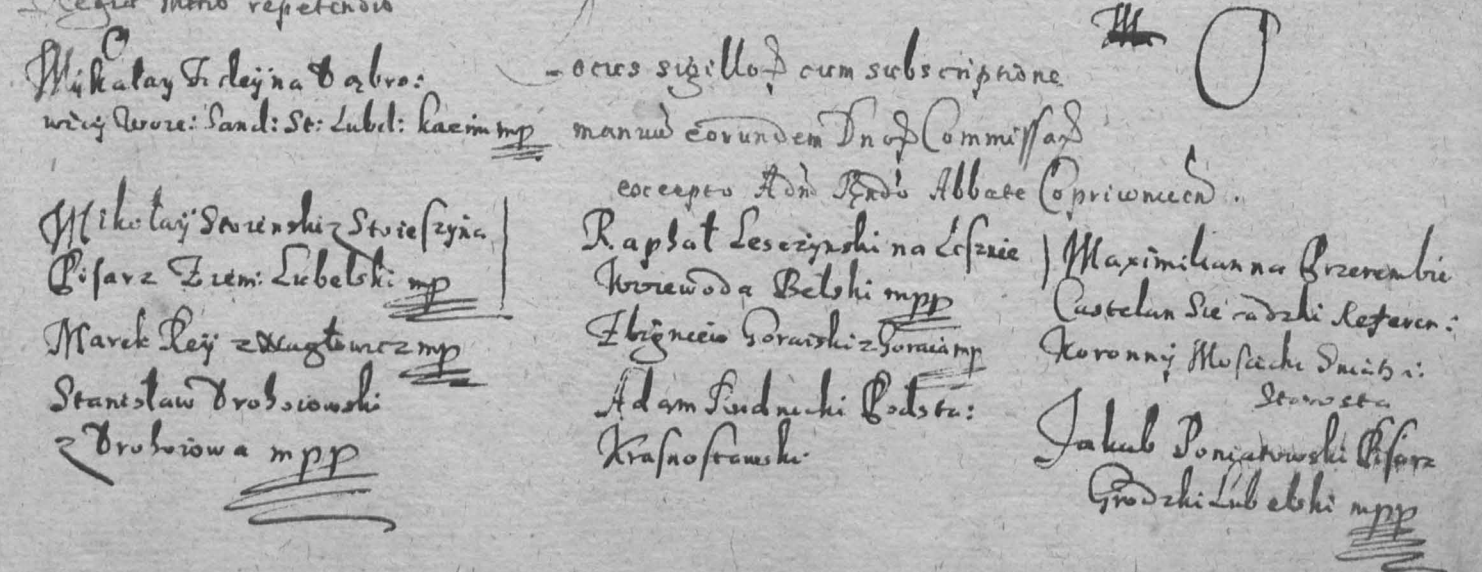 Regia mtio repetendio
Mikalay Firleÿ na Dąbro:
wicy Woie: Sand: St: Lubel: Kazim mp
Mikołaÿ Stoienski z Stoieszyna
Pisarz Ziem: Lubelski mp
Marek Reÿ z Nagłowicz mp
Stanisław Drohoiowski
z Drohoiowa mpp
Locus sigilloꝝ cum subscriptione
manuū eorundem Dnoꝝ Commissaꝝ
excepto Adm Rndo Abbate Copriwnicen .
Raphał Lesczynski na Lesznie
Woiewoda Belski mpp
Zbigniew Goraiski z Goraia mp
Adam Podsta:
Krasnostawski
Maximilian na Przerembie
Castelan Sieradzki Referen:
Koronnÿ Moscicki
Starosta
Jakub Poniatowski Pisarz
Grodzki Lubelski mpp